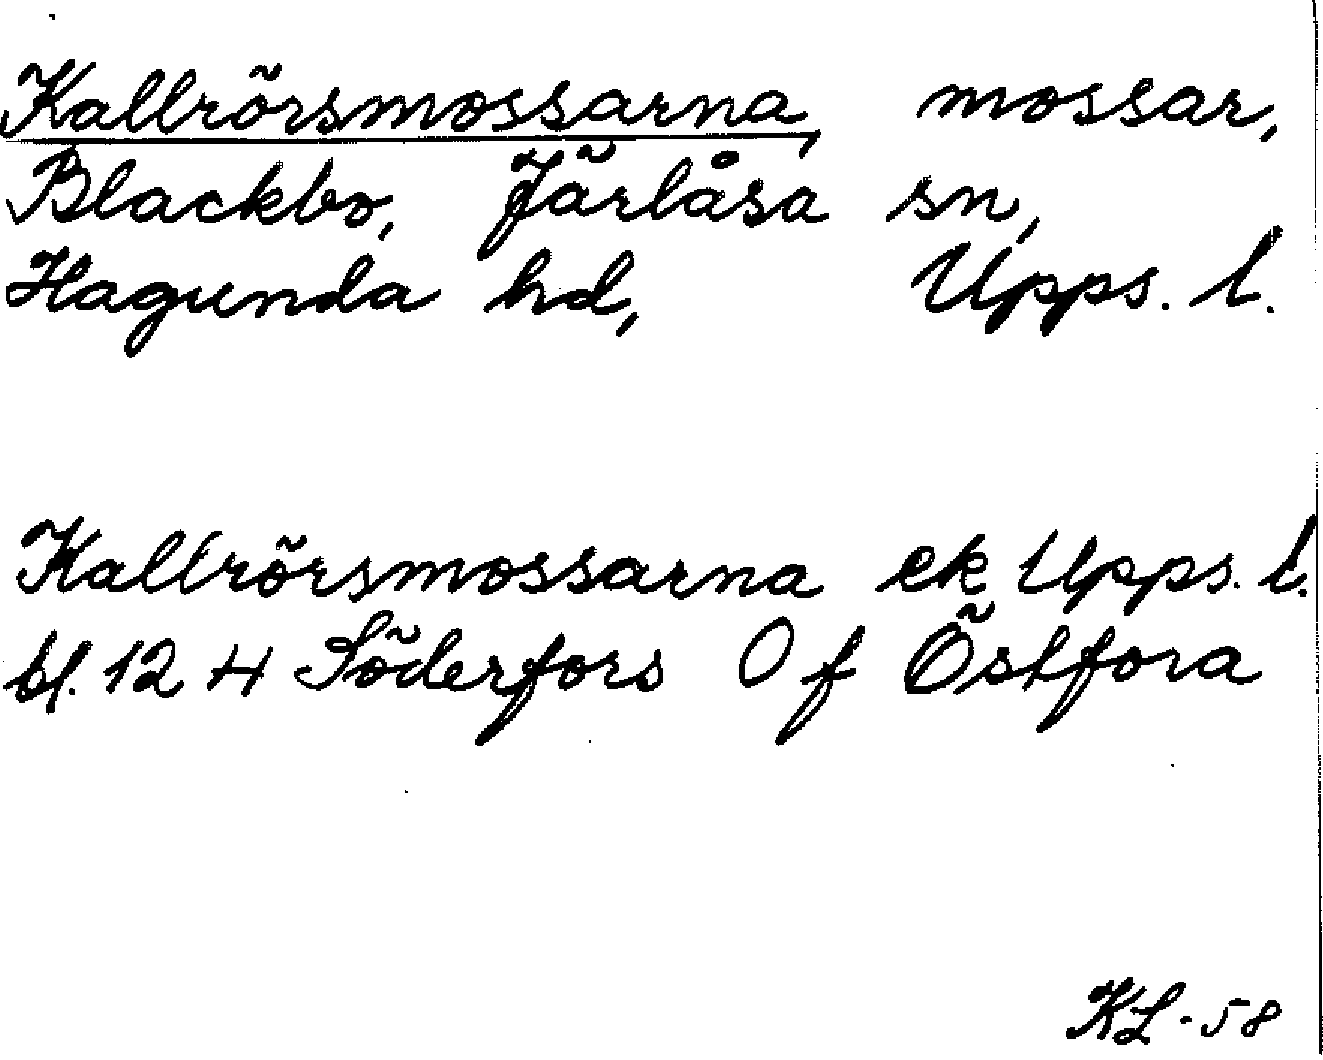 Kallrörsmossarna, mossar,
Blackbo, Järlåsa sn,
Hagunda hd, Upps. l.
Kallrörsmossarna ek Upps. l.
bl. 12 H Söderfors O f Östfora
KL-58